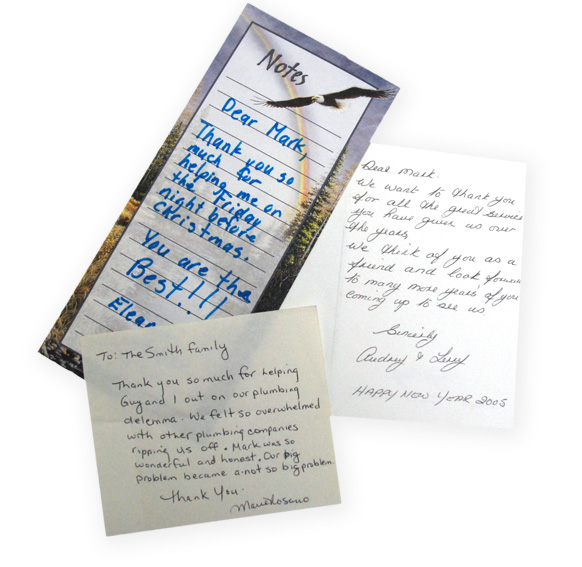 Notes
Dear Mark,
Thank you so
much for
helping me on
the Friday
night before
Christmas.
You are the
Best!!!
Dear Mark.
We want to thank you
for all the good service
you have given us over
the years
We think of you as a
friend and look forward
to many more years of you
coming up to see us
Sincerely
Audrey & Larry
HAPPY NEW YEAR 2005
To: The Smith family
Thank you so much for helping
Guy and I out on our plumbing
delemma. We felt so overwhelmed
with other plumbing companies
ripping us off. Mark was so
wonderful and honest. Our big
problem became a not so big problem.
Thank You.